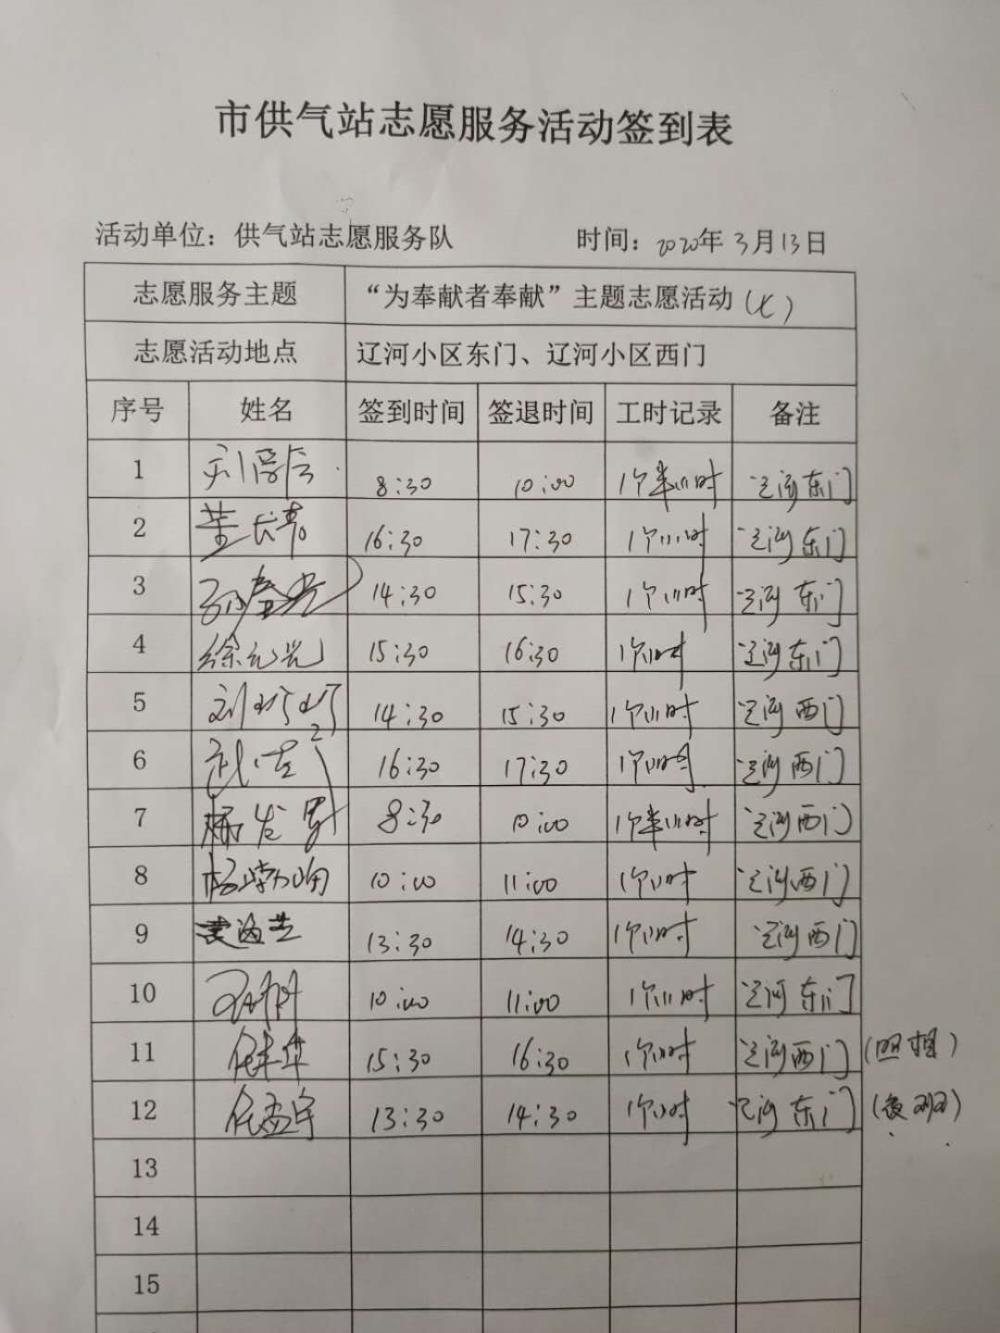 市供气站志愿服务活动签到表
活动单位：供气站志愿服务队 时间：2020年3月13日
志愿服务主题 “为奉献者奉献”主题志愿活动（七）
志愿活动地点 辽河小区东门、辽河小区西门
序号 姓名 签到时间 签退时间 工时记录 备注
1 8:30 10:00 1个半小时 辽河东门
2 16:30 17:30 1个小时 辽河东门
3 14:30 15:30 1个小时 辽河东门
4 徐元兴 15:30 16:30 1个小时 辽河东门
5 14:30 15:30 1个小时 辽河西门
6 16:30 17:30 1个小时 辽河西门
7 8:30 10:00 1个半小时 辽河西门
8 10:00 11:00 1个小时 辽河西门
9 13:30 14:30 1个小时 辽河西门
10 10:00 11:00 1个小时 辽河东门
11 15:30 16:30 1个小时 辽河西门（照相）
12 13:30 14:30 1个小时 辽河东门
13
14
15